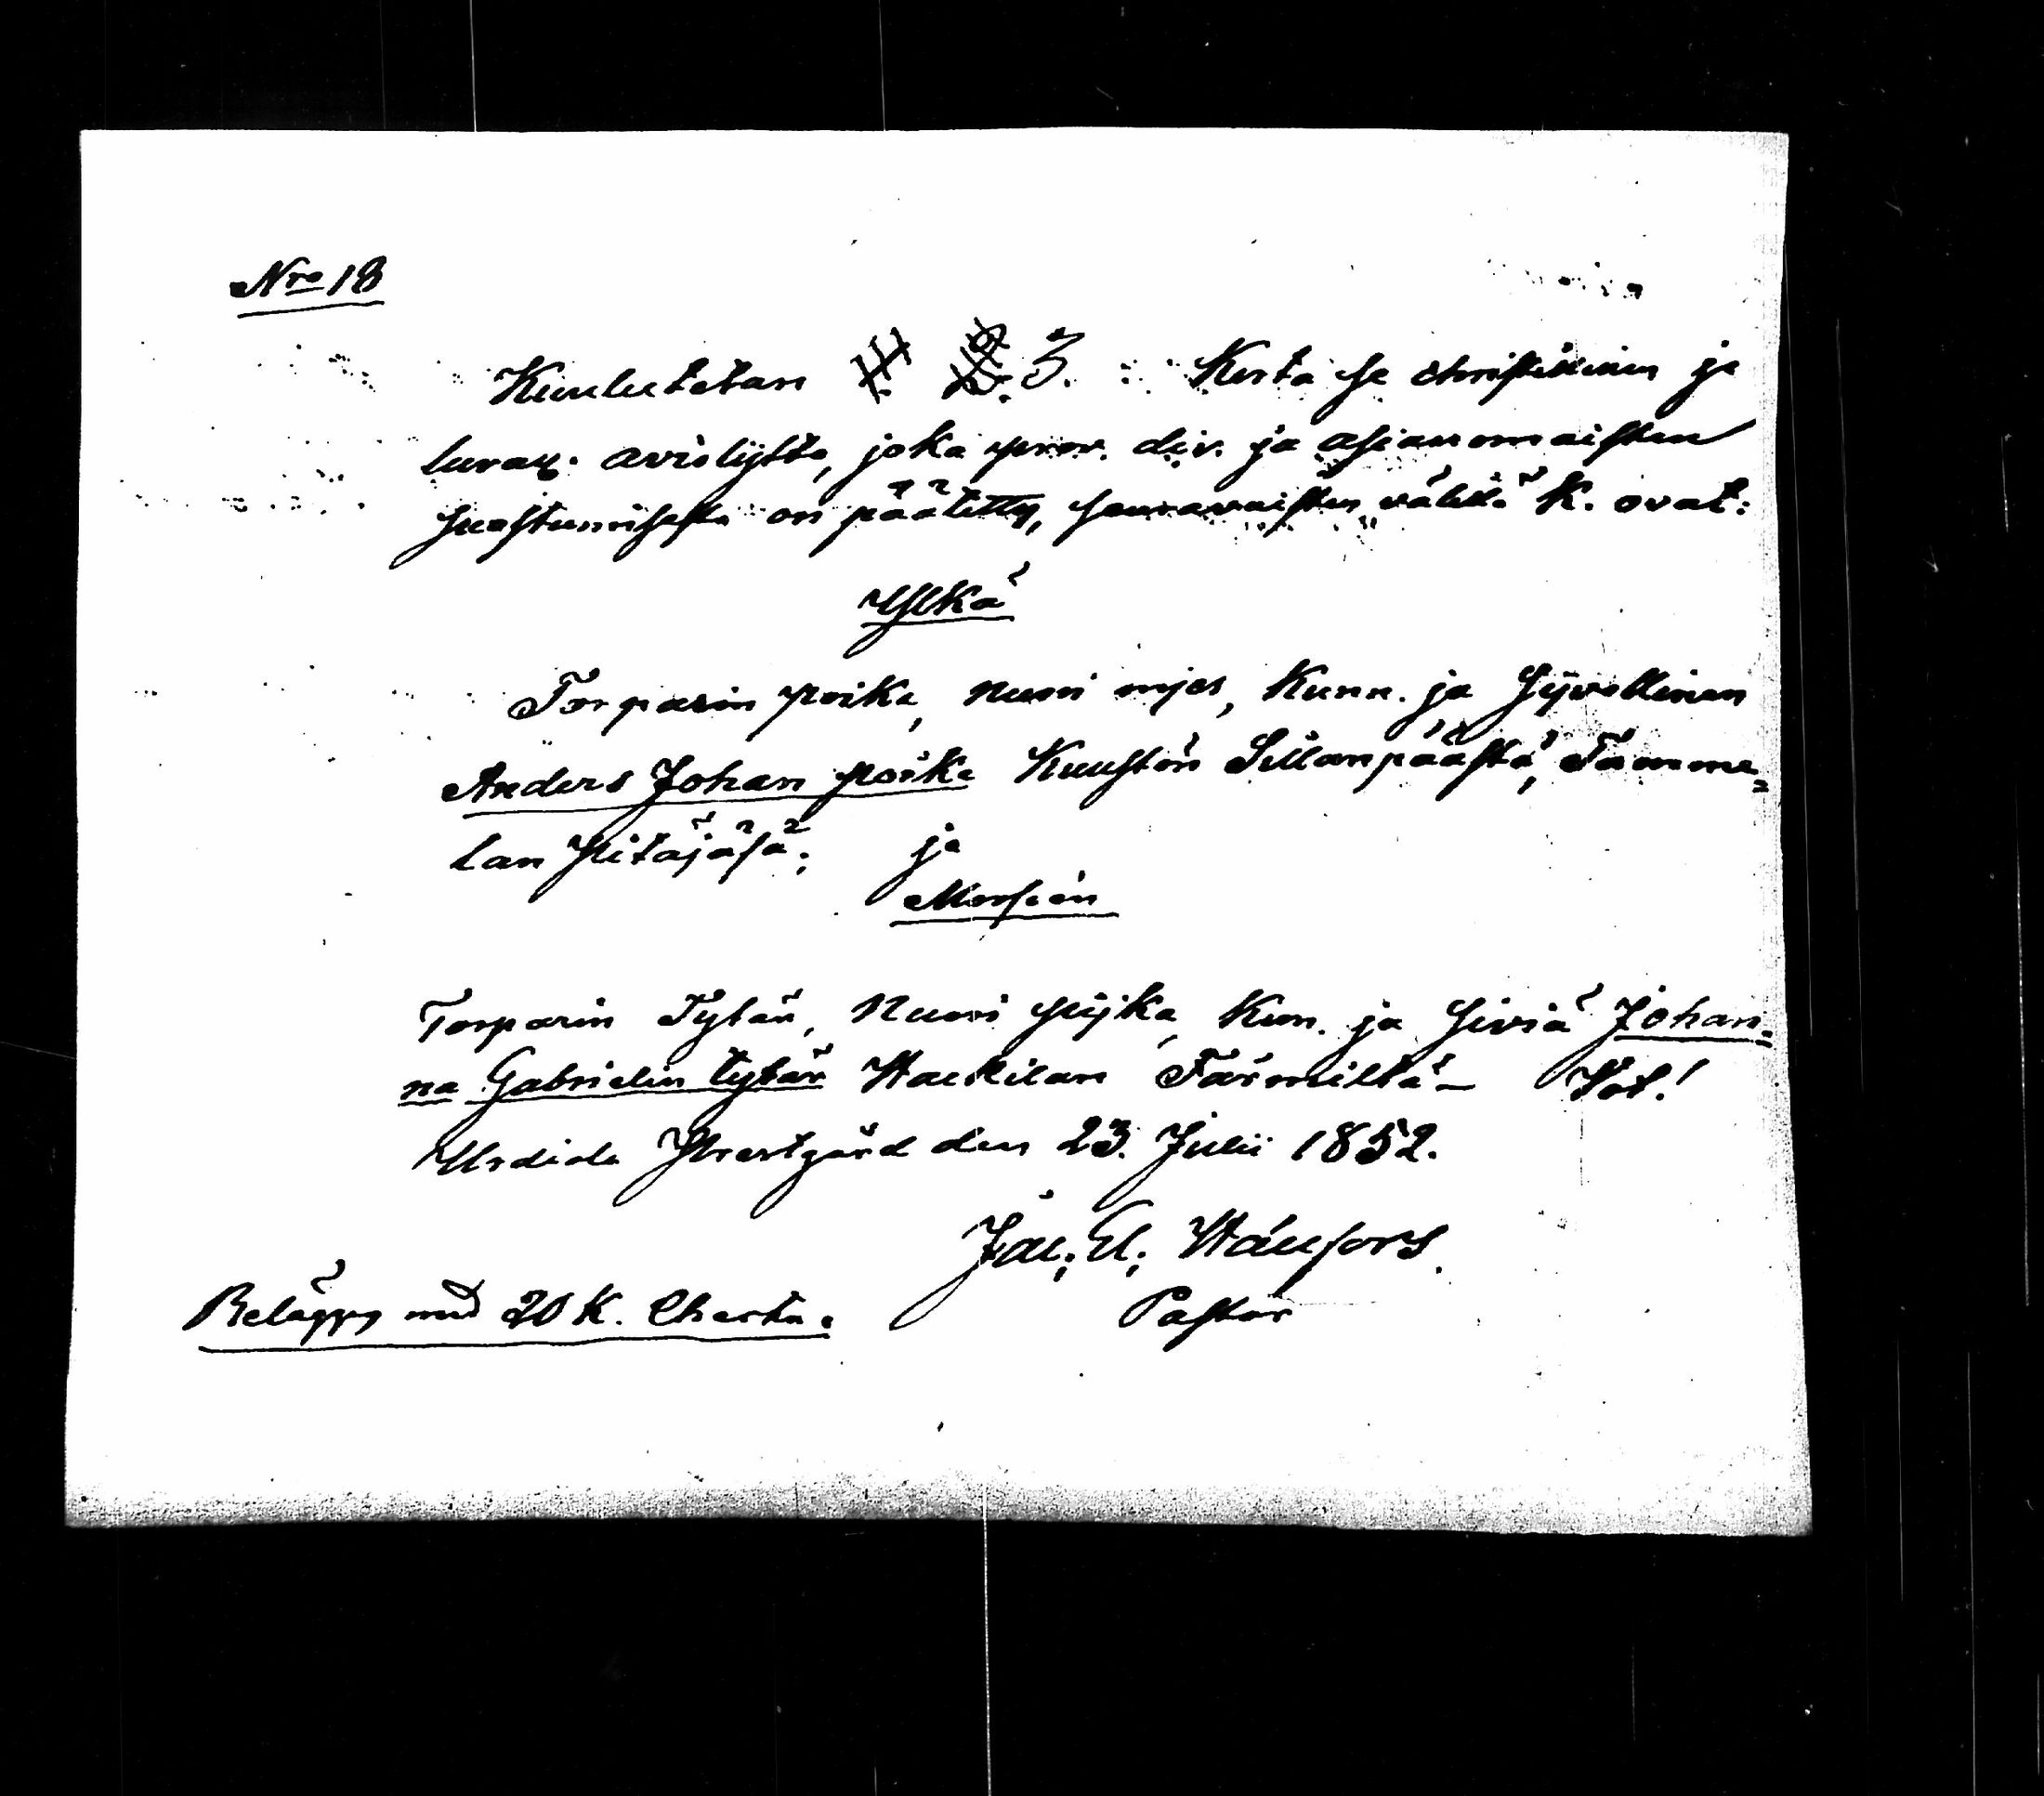 Nro 18
Kuulutetan 3. Kerta se christilinen ja
luvall. avioliitto, joka prov. div. ja asianomaisten
suostumisesta on päätetty, seuravaisten välillä K. ovat:
Ylkä
Torparin poika, nuori mjes, Kunn. ja Syvällinen
Anders Johan poika Kuustón Sillanpäästä, Tamme=
lan Pitäjäsä; ja
Morsian
Torparin Tytär, Nuori pijka, Kun. ja Siviä Johan=
na Gabrielin tytär Haukilan Färmiltä – Hot!
Urdiala Prestgård den 23. Julii 1852.
Jac. El. Wänfors.
Pastor
Belägges med 20 K. Charta.